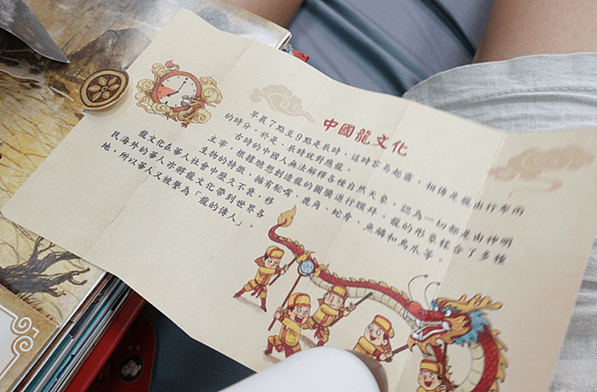 中國龍文化
早晨7點至9點是辰時，這時容易起霧，相傳是龍出行布雨
的時分。於是，辰時就對應龍。
古時的中國人無法解釋各種自然天象，認為一切都是由神明
主宰，根據聯想創造龍的圖騰進行膜拜。龍的形象糅合了多種
生物的特徵，擁有駝嘴、鹿角、蛇身、魚鱗和鳥爪等。
龍文化在華人社會中歷久不衰，移
民海外的華人亦將龍文化帶到世界各
地，所以華人又被譽為「龍的傳人」。